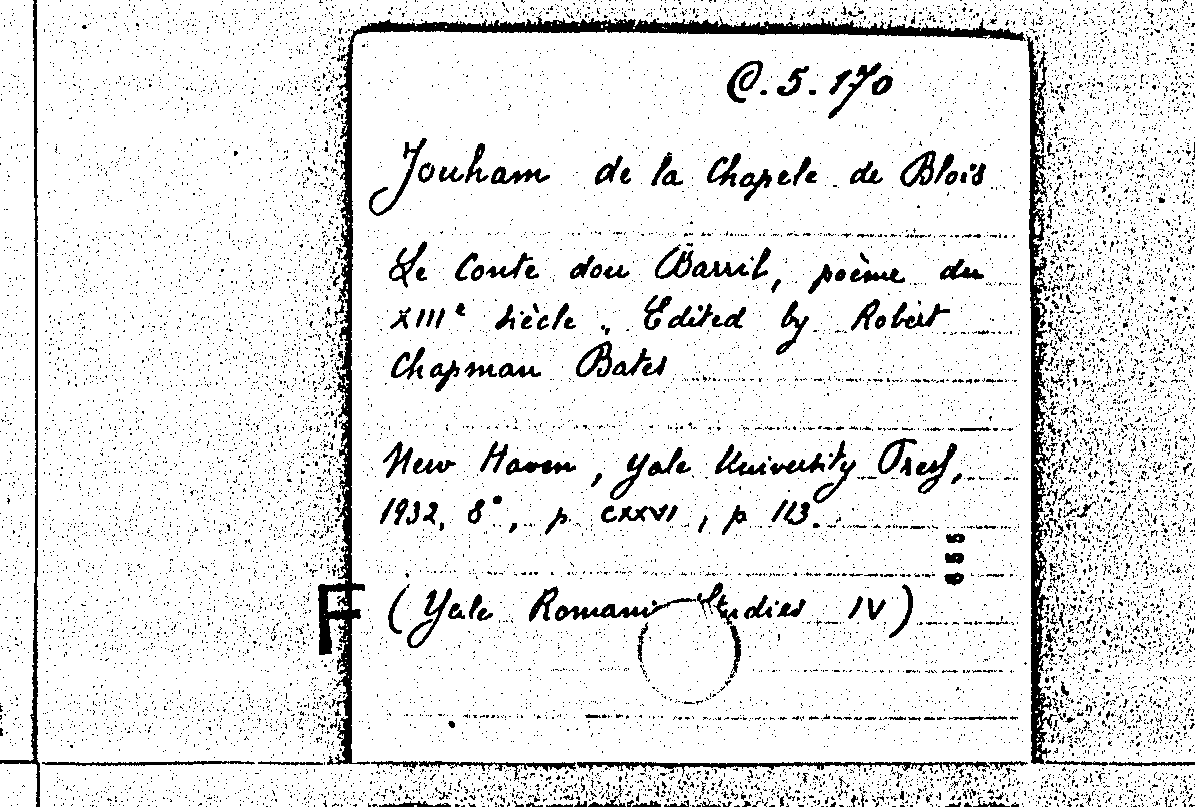 C.5.170
Jouham de la Chapele de Blois
Le Conte dou Barril, poème du
XIIIe siècle. Edited by Robert
Chapman Bates
New Haven, Yale University Press,
1932, 8°, p CXXVI, p 113.
655
F (Yale Romanic Studies IV)